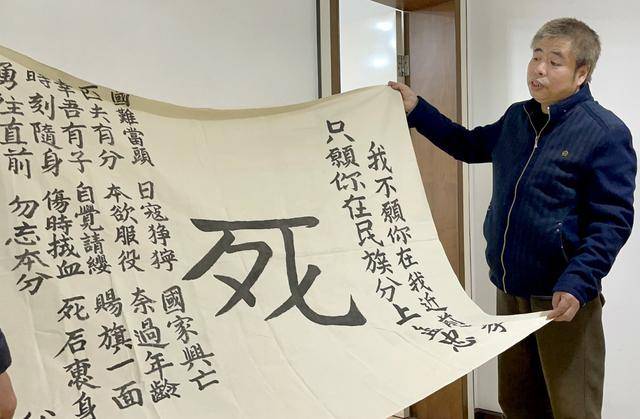 我不願你在我近前
只願你在民族分上盡忠
死
國難當頭 日寇猙獰 國家興亡
匹夫有分 本欲服役 奈過年齡
幸吾有子 自覺請纓 賜旗一面
時刻隨身 傷時拭血 死后裹身
勇往直前 勿忘本分